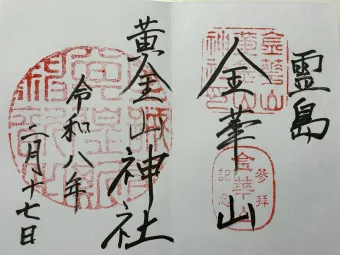 霊島
金華山
金華山
参拝
記念
黄金山神社
令和八年
二月十七日